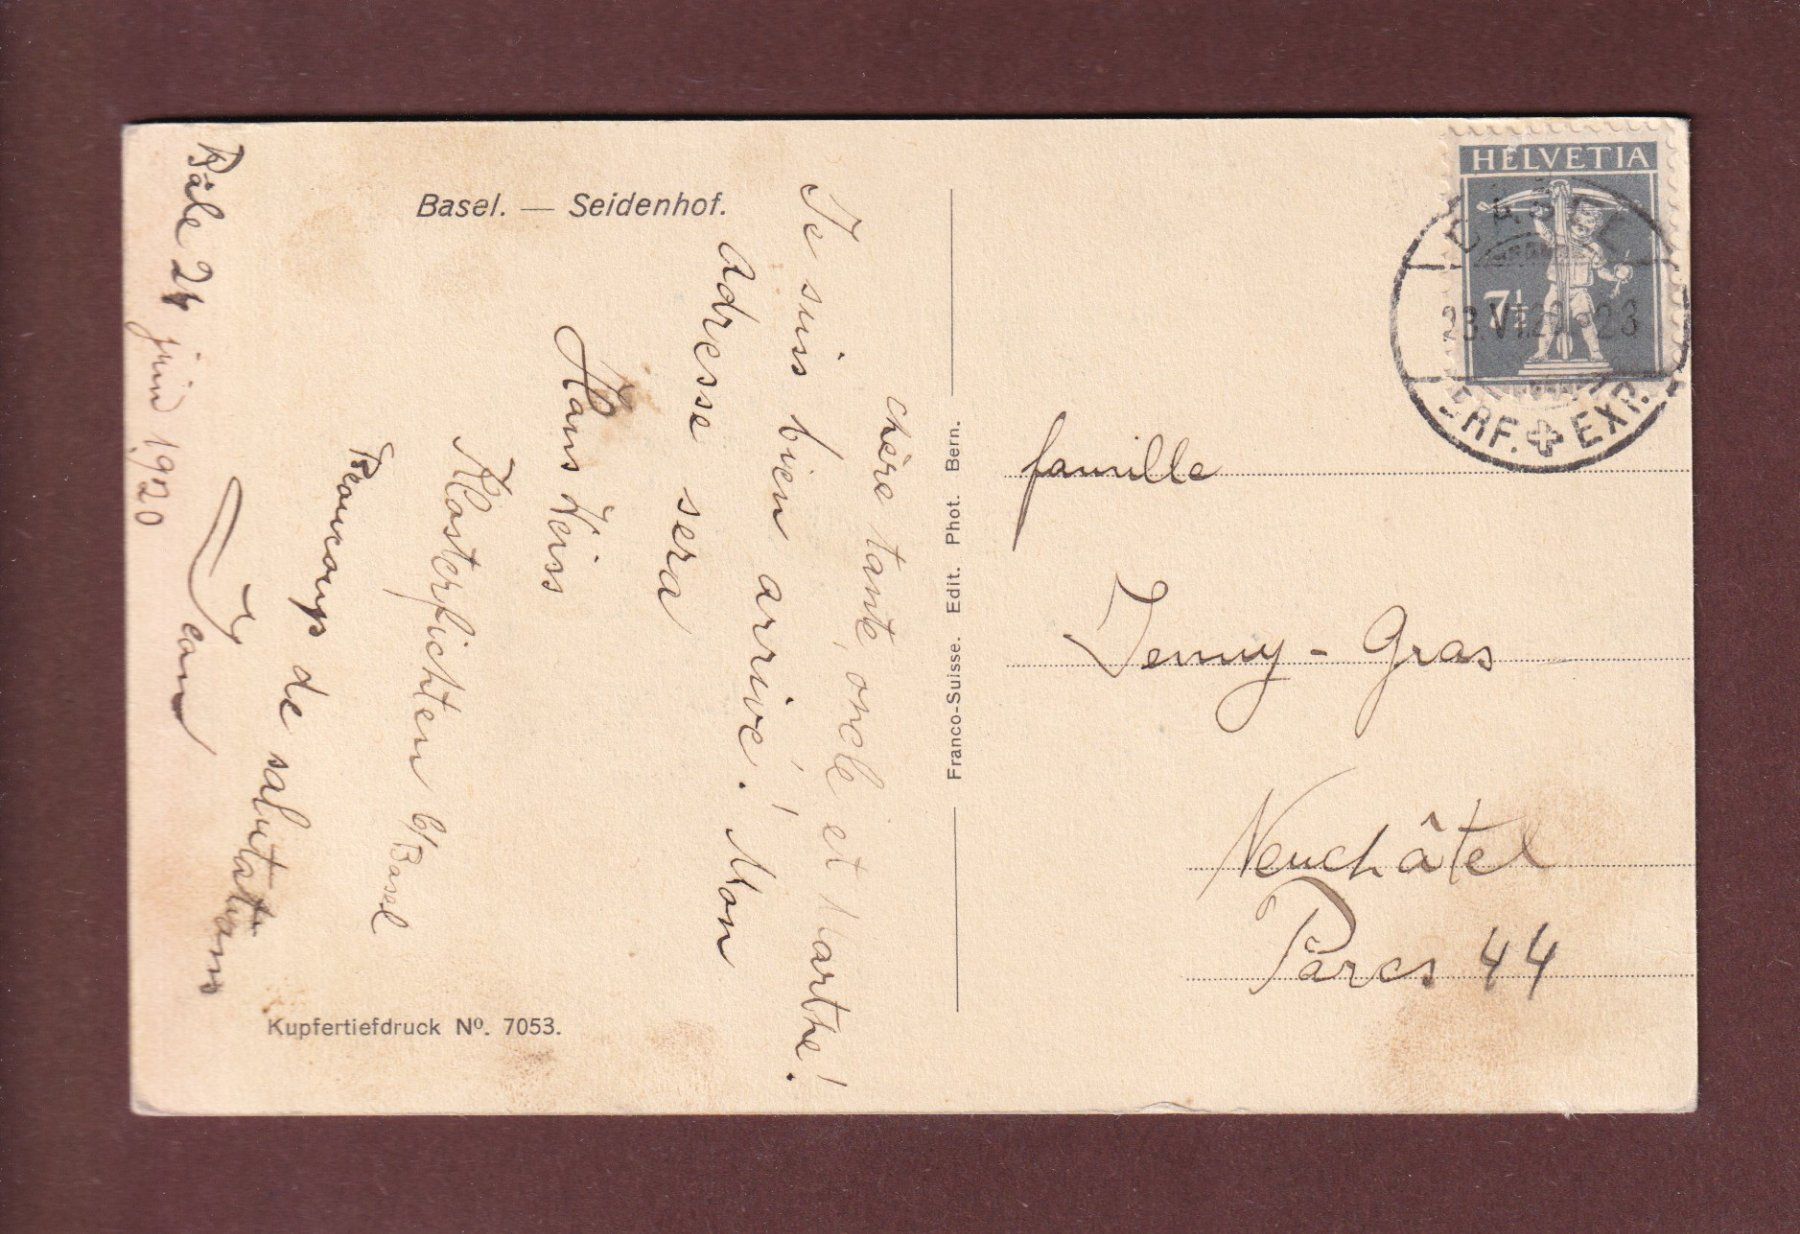 Basel. — Seidenhof.
Bâle 24 juin 1920
chère tante, oncle et Marthe!
Je suis bien arrivé! Mon
Adresse sera
Hans Weiss
Klosterfichten b/Basel
Beaucoup de salutations
Jean
Kupfertiefdruck Nº. 7053.
Franco-Suisse. Edit. Phot. Bern.
HELVETIA
7½
BASEL
23.VI.20-23
BRF. EXP.
famille
Jenny - Gras
Neuchâtel
Parcs 44